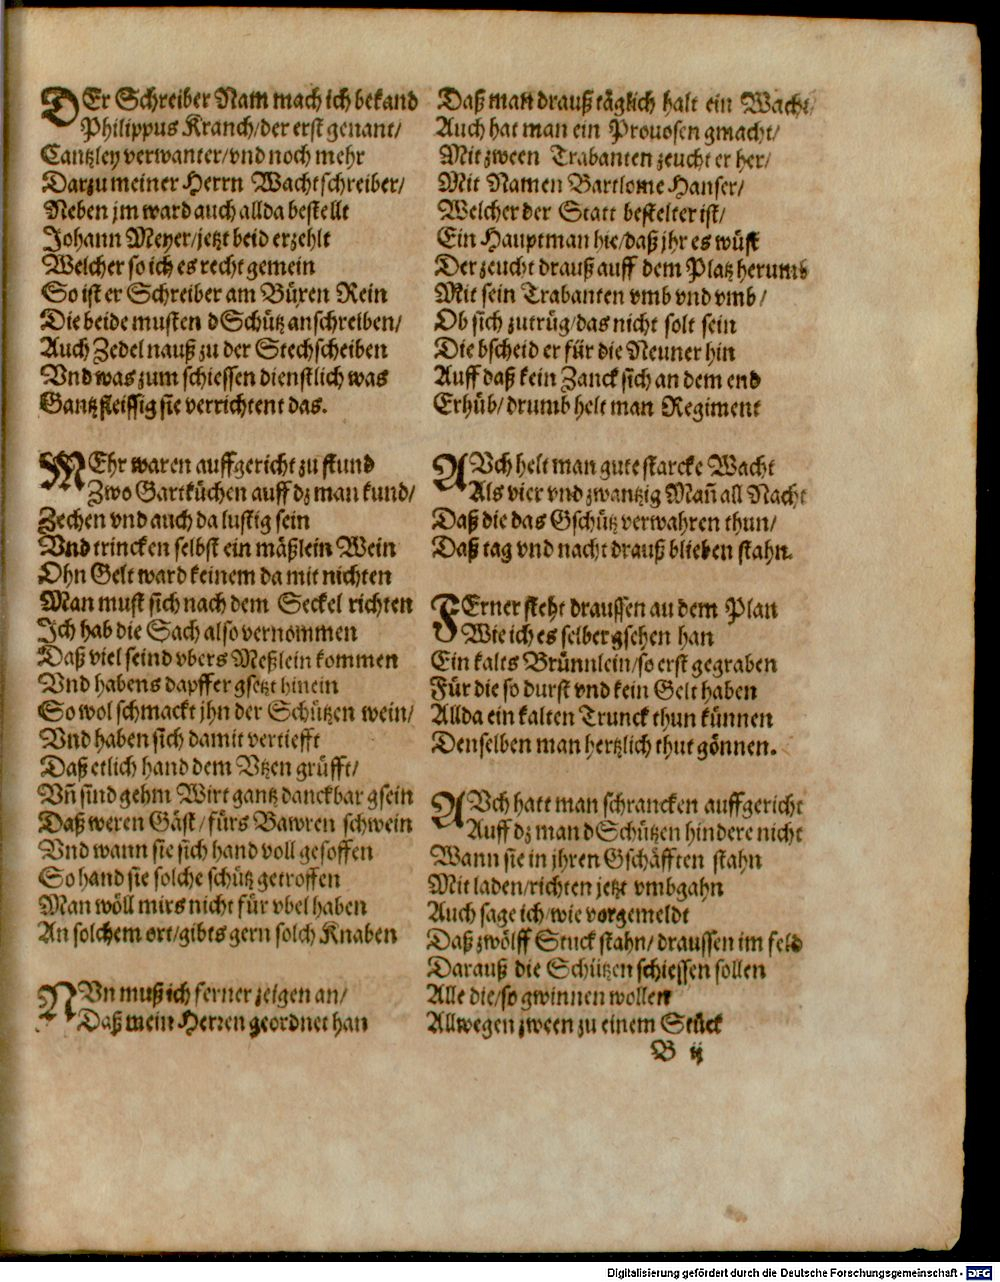 DEr Schreiber Nam mach ich bekand
Philippus Kranch/der erst genant/
Cantzley verwanter/vnd noch mehr
Darzu meiner Herrn Wachtschreiber/
Neben jm ward auch allda bestellt
Johann Meyer/jetzt beid erzehlt
Welcher so ich es recht gemein
So ist er Schreiber am Büxen Rein
Die beide musten dSchütz anschreiben/
Auch Zedel nauß zu der Stechscheiben
Vnd was zum schiessen dienstlich was
Gantz fleissig sie verrichtent das.

MEhr waren auffgericht zu stund
Zwo Gartküchen auff dz man kund/
Zechen vnd auch da lustig sein
Vnd trincken selbst ein mäßlein Wein
Ohn Gelt ward keinem da mit nichten
Man must sich nach dem Seckel richten
Ich hab die Sach also vernommen
Daß viel seind vbers Meßlein kommen
Vnd habens dapffer gsetzt hinein
So wol schmackt jhn der Schützen wein/
Vnd haben sich damit vertiefft
Daß etlich hand dem Vtzen grüfft/
Vñ sind gehm Wirt gantz danckbar gsein
Daß weren Gäst/fürs Bawren schwein
Vnd wann sie sich hand voll gesoffen
So hand sie solche schütz getroffen
Man wöll mirs nicht für vbel haben
An solchem ort/gibts gern solch Knaben

NVn muß ich ferner zeigen an/
Daß mein Herren geordnet han
Daß man drauß täglich halt ein Wacht/
Auch hat man ein Prouosen gmacht/
Mit zween Trabanten zeucht er her/
Mit Namen Bartlome Hanser/
Welcher der Statt bestelter ist/
Ein Hauptman hie/daß jhr es wüst
Der zeucht drauß auff dem Platz herumb
Mit sein Trabanten vmb vnd vmb/
Ob sich zutrüg/das nicht solt sein
Die bscheid er für die Neuner hin
Auff daß kein Zanck sich an dem end
Erhüb/drumb helt man Regiment

AVch helt man gute starcke Wacht
Als vier vnd zwantzig Mañ all Nacht
Daß die das Gschütz verwahren thun/
Daß tag vnd nacht drauß blieben stahn.

FErner steht draussen an dem Plan
Wie ich es selber gsehen han
Ein kalts Brünnlein/so erst gegraben
Für die so durst vnd kein Gelt haben
Allda ein kalten Trunck thun künnen
Denselben man hertzlich thut gönnen.

AVch hatt man schrancken auffgericht
Auff dz man dSchützen hindere nicht
Wann sie in jhren Gschäfften stahn
Mit laden/richten jetzt vmbgahn
Auch sage ich/wie vorgemeldt
Daß zwölff Stuck stahn/draussen im feld
Darauß die Schützen schiessen sollen
Alle die/so gwinnen wollen
Allwegen zween zu einem Stück
B ij
Digitalisierung gefördert durch die Deutsche Forschungsgemeinschaft - DFG